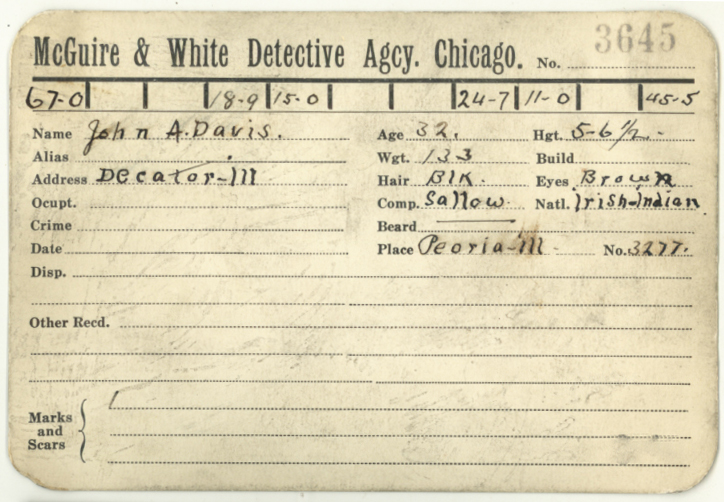 McGuire & White Detective Agcy. Chicago. No. 3645
67-0 18-9 15-0 24-7 11-0 45-5
Name John A. Davis. Age 32. Hgt. 5-6 1/2.-
Alias Wgt. 133 Build
Address Decator-Ill Hair Blk. Eyes Brown
Ocupt. Comp. Sallow. Natl. Irish-Indian
Crime Beard
Date Place Peoria-Ill No. 3277.
Disp.
Other Recd.
Marks
and
Scars